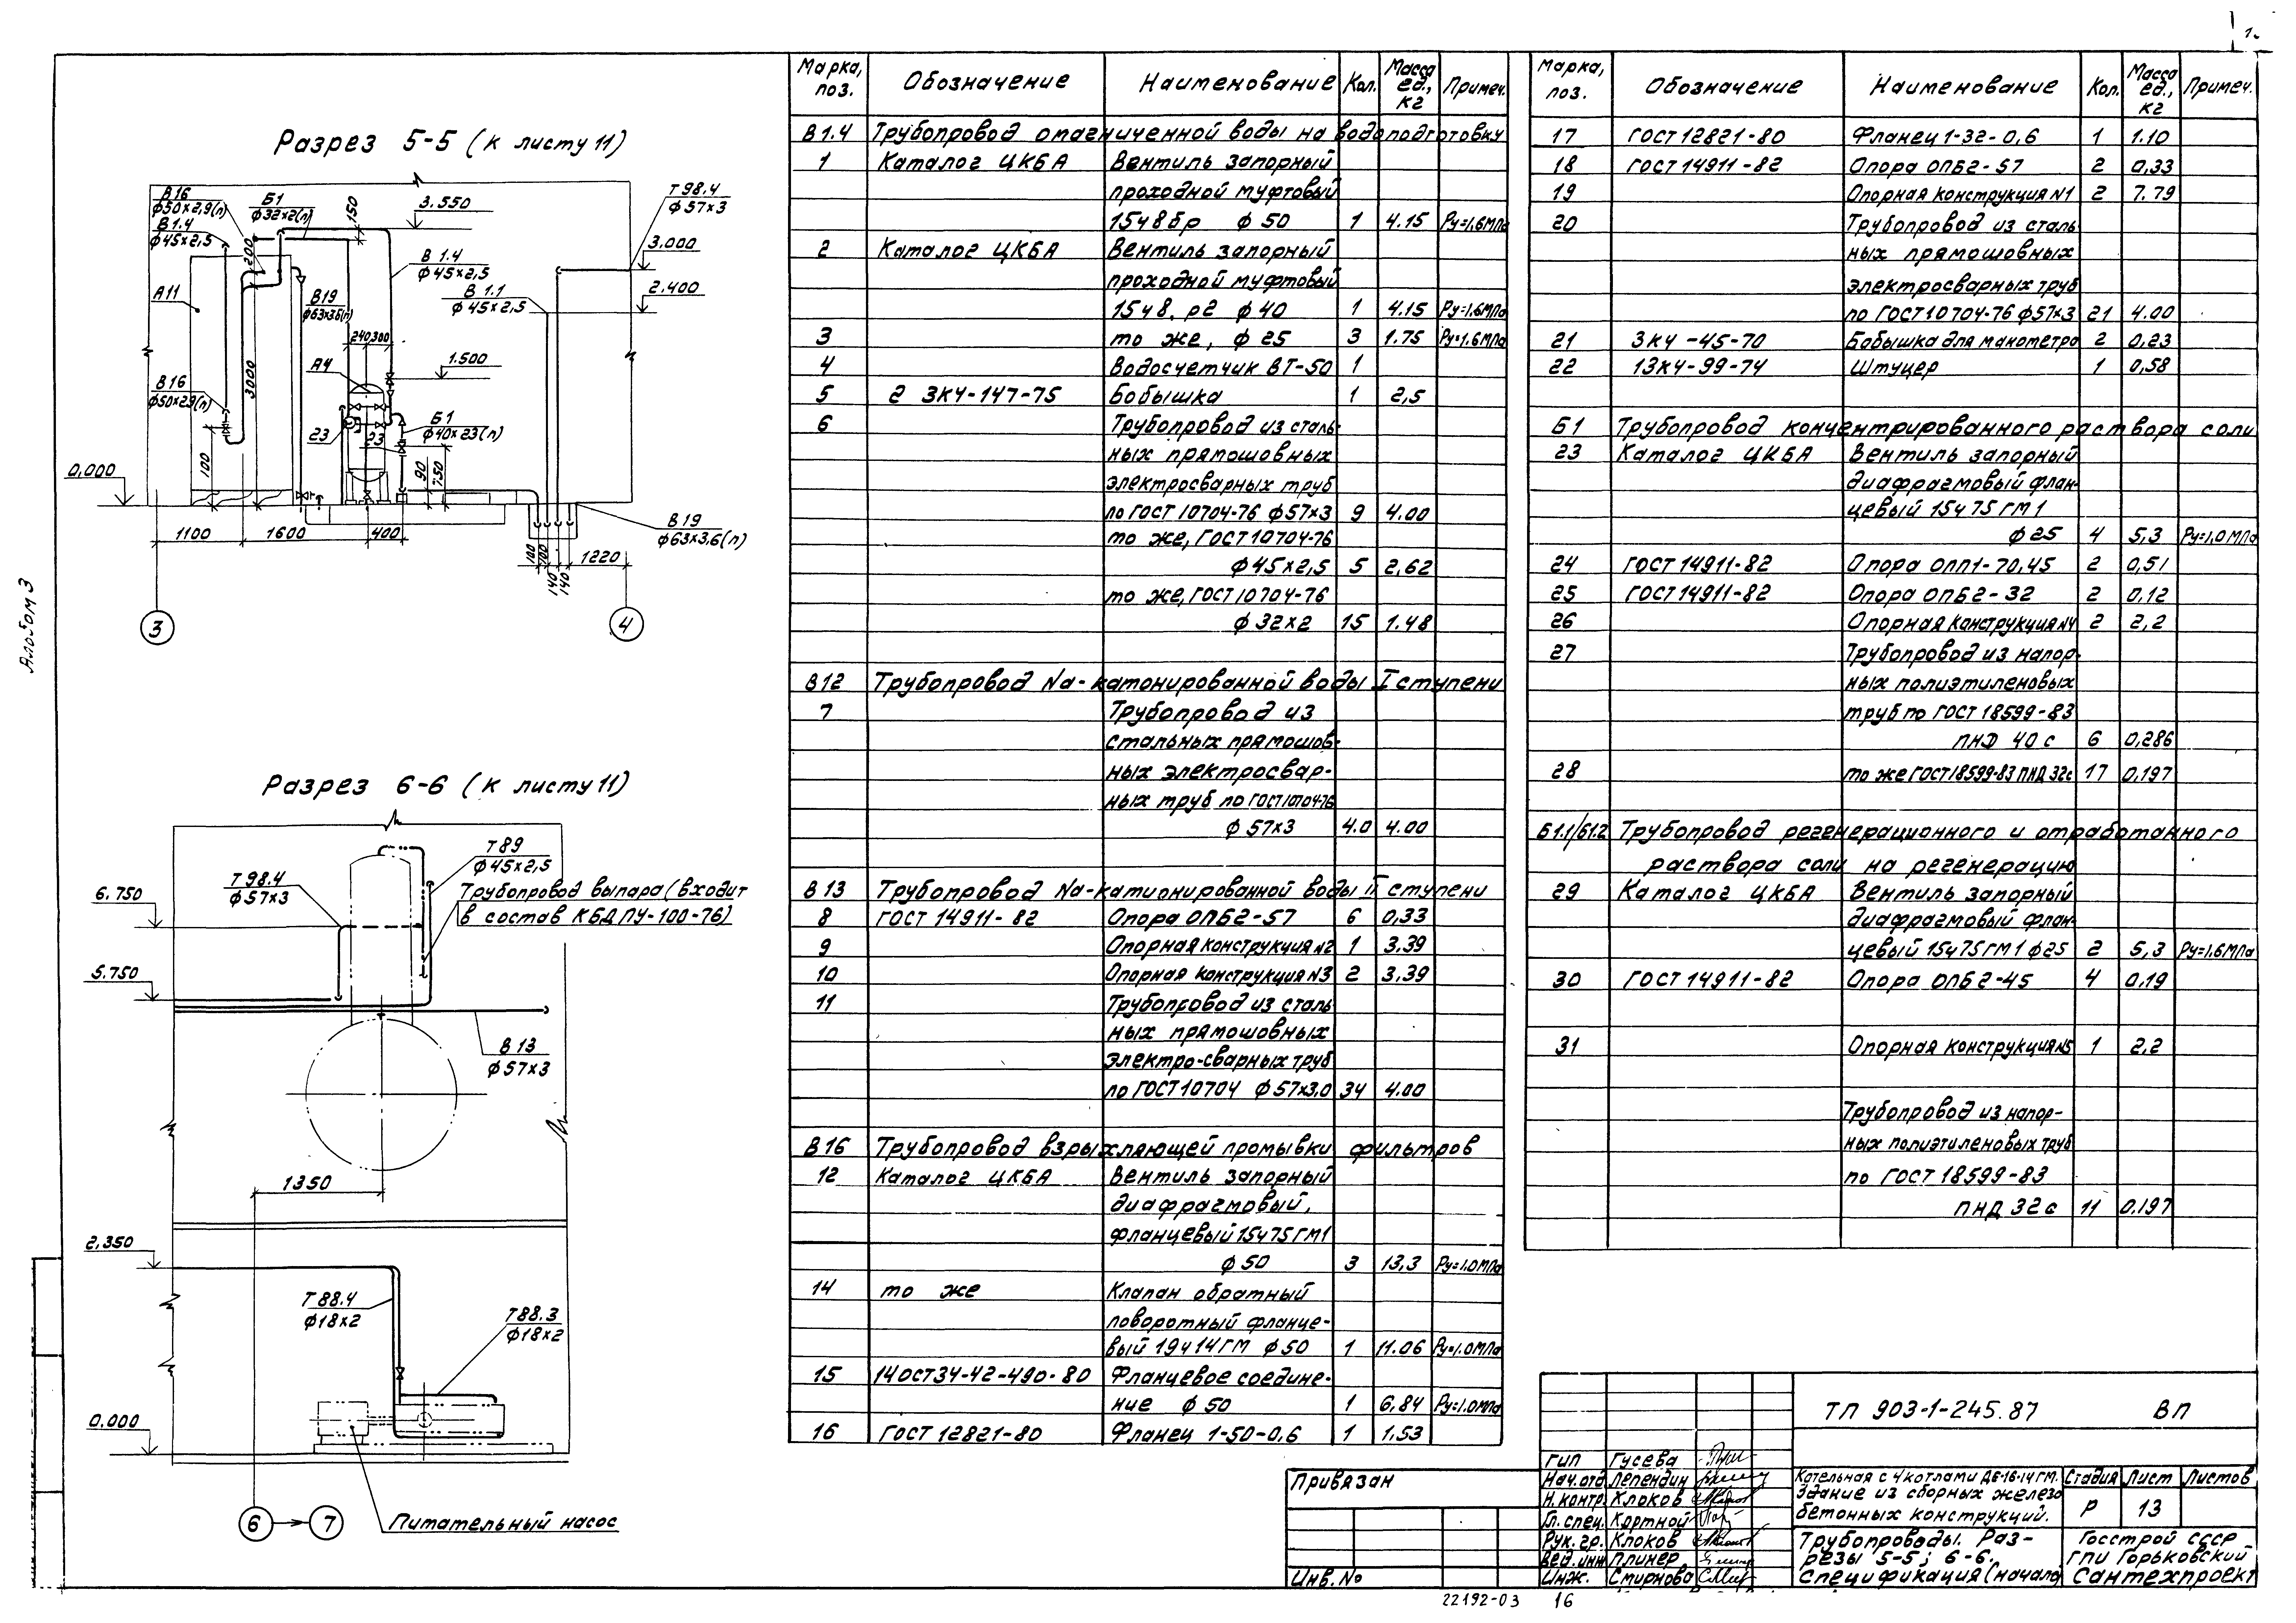 Альбом 3
Разрез 5-5 (к листу 11)
В16
ф50×2,9(п)
В1.4
ф45×2,5
Б1
ф32×2(п)
150
3.550
Т98.4
ф57×3
3.000
200
В 1.4
ф45×2,5
В 1.1
ф45×2,5
2.400
А11
В19
ф63×3,6(п)
240
300
А4
1.500
3000
В16
ф50×2,9(п)
Б1
ф40×2,3(п)
23
23
100
0.000
90
750
В19
ф63×3,6(п)
1100
1600
400
100
100
140
140
1220
3
4
Разрез 6-6 (к листу 11)
Т89
ф45×2,5
Т98.4
ф57×3
Трубопровод выпара (входит
в состав КБДПУ-100-76)
6.750
5.750
В 13
ф57×3
1350
2,350
Т88.4
ф18×2
Т88.3
ф18×2
0.000
6
7
Питательный насос
Марка, поз. Обозначение Наименование Кол. Масса ед., кг Примеч.
В1.4 Трубопровод омагниченной воды на водоподготовку
1 Каталог ЦКБА Вентиль запорный
проходной муфтовый
15ч8бр ф 50 1 4.15 Ру=1,6МПа
2 Каталог ЦКБА Вентиль запорный
проходной муфтовый
15ч8.р2 ф 40 1 4.15 Ру=1,6МПа
3 то же, ф 25 3 1.75 Ру=1.6МПа
4 Водосчетчик ВТ-50 1
5 2 ЗК4-147-75 Бобышка 1 2,5
6 Трубопровод из сталь-
ных прямошовных
электросварных труб
по ГОСТ 10704-76 ф57×3 9 4.00
то же, ГОСТ 10704-76
ф45×2,5 5 2,62
то же, ГОСТ 10704-76
ф 32×2 15 1.48
В12 Трубопровод Na-катонированной воды I ступени
7 Трубопровод из
стальных прямошов-
ных электросвар-
ных труб по ГОСТ10704-76
ф 57×3 4.0 4.00
В 13 Трубопровод Na-катионированной воды II ступени
8 ГОСТ 14911-82 Опора ОПБ2-57 6 0,33
9 Опорная конструкция N2 1 3.39
10 Опорная конструкция N3 2 3.39
11 Трубопровод из сталь
ных прямошовных
электро-сварных труб
по ГОСТ 10704 ф 57×3.0 34 4.00
В16 Трубопровод взрыхляющей промывки фильтров
12 Каталог ЦКБА Вентиль запорный
диафрагмовый,
фланцевый 15ч75ГМ1
ф 50 3 13,3 Ру=1.0МПа
14 то же Клапан обратный
поворотный фланце-
вый 19ч14ГМ ф 50 1 11.06 Ру=1.0МПа
15 14ОСТ34-42-490-80 Фланцевое соедине-
ние ф 50 1 6,84 Ру=1.0МПа
16 ГОСТ 12821-80 Фланец 1-50-0,6 1 1,53
Марка, поз. Обозначение Наименование Кол. Масса ед., кг Примеч.
17 ГОСТ 12821-80 Фланец 1-32-0,6 1 1.10
18 ГОСТ 14911-82 Опора ОПБ2-57 2 0,33
19 Опорная конструкция N1 2 7.79
20 Трубопровод из сталь
ных прямошовных
электросварных труб
по ГОСТ 10704-76 ф57×3 21 4.00
21 ЗК4-45-70 Бобышка для манометра 2 0,23
22 13К4-99-74 Штуцер 1 0,58
Б1 Трубопровод концентрированного раствора соли
23 Каталог ЦКБА Вентиль запорный
диафрагмовый флан-
цевый 15ч75ГМ1
ф 25 4 5,3 Ру=1,0МПа
24 ГОСТ 14911-82 Опора ОПП1-70,45 2 0,51
25 ГОСТ 14911-82 Опора ОПБ2-32 2 0,12
26 Опорная конструкция N4 2 2,2
27 Трубопровод из напор-
ных полиэтиленовых
труб по ГОСТ 18599-83
ПНД 40 с 6 0,286
28 то же ГОСТ18599-83 ПНД 32с 17 0,197
Б1.1/Б1.2 Трубопровод регенерационного и отработанного
раствора соли на регенерацию
29 Каталог ЦКБА Вентиль запорный
диафрагмовый флан-
цевый 15ч75ГМ1 ф25 2 5,3 Ру=1.6МПа
30 ГОСТ 14911-82 Опора ОПБ2-45 4 0.19
31 Опорная конструкция N5 1 2.2
Трубопровод из напор-
ных полиэтиленовых труб
по ГОСТ 18599-83
ПНД 32с 11 0.197
ТП 903-1-245.87 ВП
ГИП Гусева
Нач.отд Лепендин
Н.контр. Клоков
Гл.спец. Кортной
Рук. гр. Клоков
Вед.инж Плинер
Инж. Смирнова
Котельная с 4 котлами ДЕ-16-14ГМ.
Здание из сборных железо
бетонных конструкций.
Стадия Лист Листов
Р 13
Трубопроводы. Раз-
резы 5-5; 6-6.
Спецификация (начало)
Госстрой СССР
ГПИ Горьковский
Сантехпроект
Привязан
Инв. №
22192-03 16